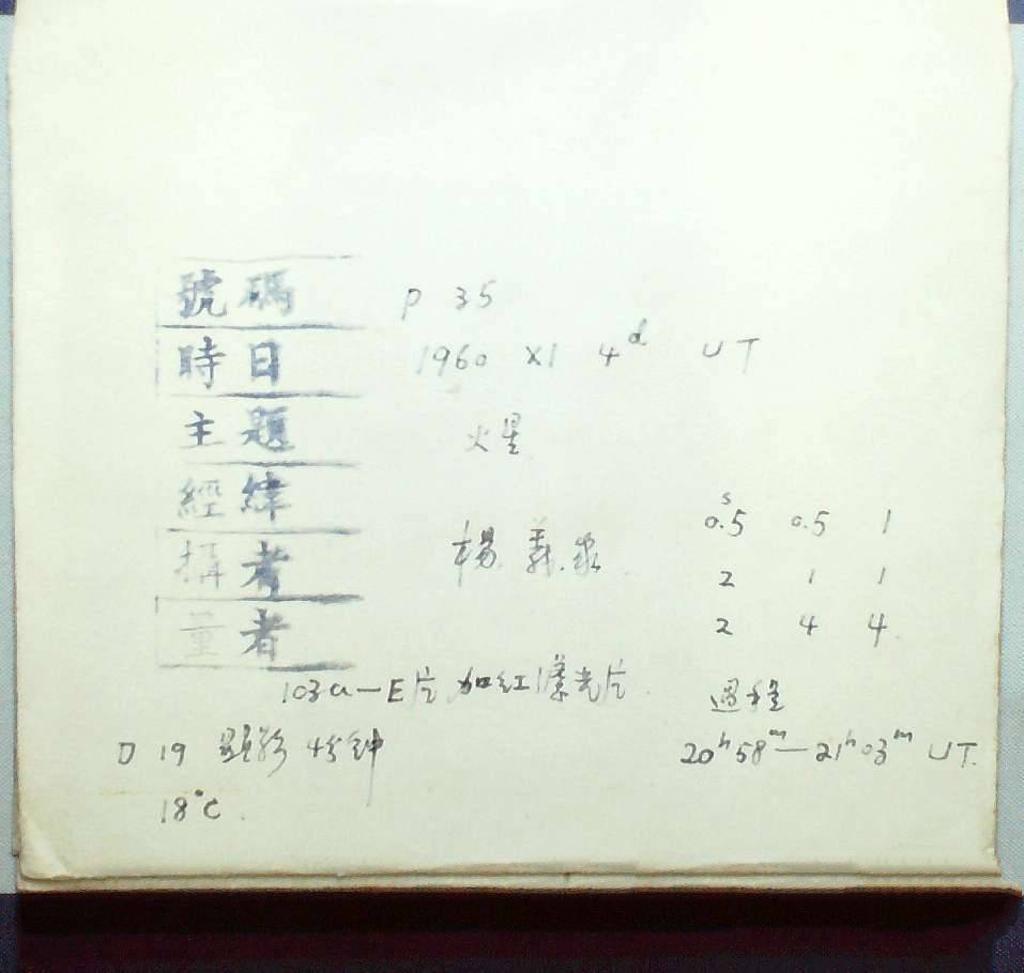 號碼 P 35
時日 1960 XI 4d UT
主題 火星
經緯
s
攝者 楊 0.5 0.5 1
2 1 1
量者 2 4 4
103a-E片 加紅濾光片 過程
D 19 顯影 4分钟 20h58m—21h03m UT.
18°C.